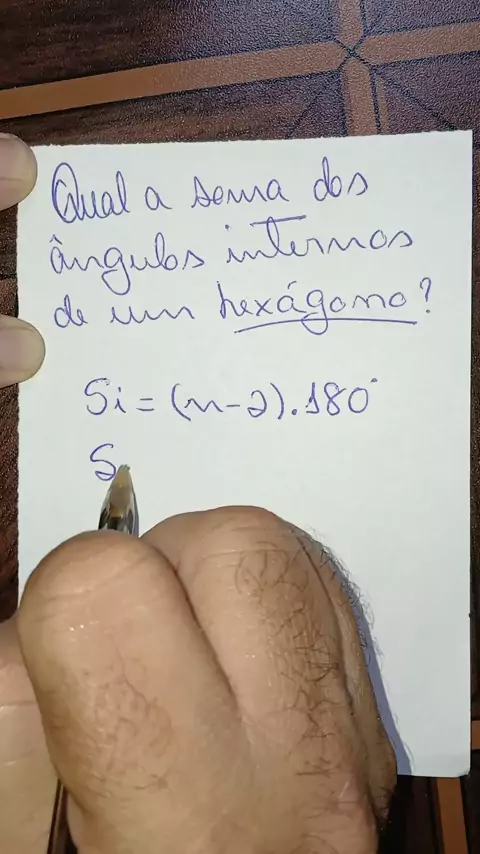 Qual a soma dos
ângulos internos
de um hexágono?
Si = (n-2).180°
S